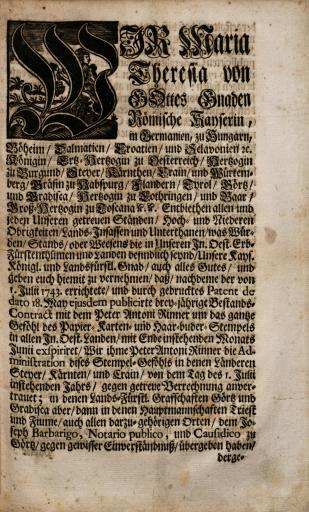 WIR Maria
Theresia von
GOttes Gnaden
Römische Kayserin,
in Germanien, zu Hungarn,
Böheim / Dalmatien / Croatien / und Sclavonien ꝛc.
Königin / Ertz-Hertzogin zu Oesterreich / Hertzogin
zu Burgund / Steyer / Kärnthen / Crain / und Würtem-
berg / Gräfin zu Habspurg / Flandern / Tyrol / Görtz /
und Gradisca / Hertzogin zu Lothringen / und Baar /
Groß-Hertzogin zu Toscana ꝛc. ꝛc. Entbiethen allen und
jeden Unseren getreuen Ständen / Hoch- und Niederen
Obrigkeiten / Lands-Insassen und Unterthanen / was Wür-
den / Stands / oder Weesens die in Unseren In. Oest. Erb-
Fürstenthümen und Landen befindlich seynd / Unsere Kays.
Königl. und Landsfürstl. Gnad / auch alles Gutes / und
geben euch hiemit zu vernehmen / daß / nachdeme der von
1. Julii 1743. errichtete / und durch gedrucktes Patent de
dato 18. May ejusdem publicirte drey-jährige Bestands-
Contract mit dem Peter Antoni Rinner um das gantze
Geföhl des Papier- Karten- und Haar-puder-Stempels
in allen In. Oest. Landen / mit Ende instehenden Monats
Junii exspiriret / Wir ihme Peter Antoni Rinner die Ad-
ministration dises Stempel-Geföhls in denen Länderen
Steyer / Kärnten / und Crain / von dem Tag des 1. Julii
instehenden Jahrs / gegen getreue Verrechnung anver-
trauet; in denen Lands-Fürstl. Graffschafften Görtz und
Gradisca aber / dann in denen Hauptmannschafften Triest
und Fiume / auch allen darzu-gehörigen Orten / dem Jo-
seph Barbarigo, Notario publico, und Causidico zu
Görtz / gegen gewisser Einverständnuß / übergeben haben /
derge-